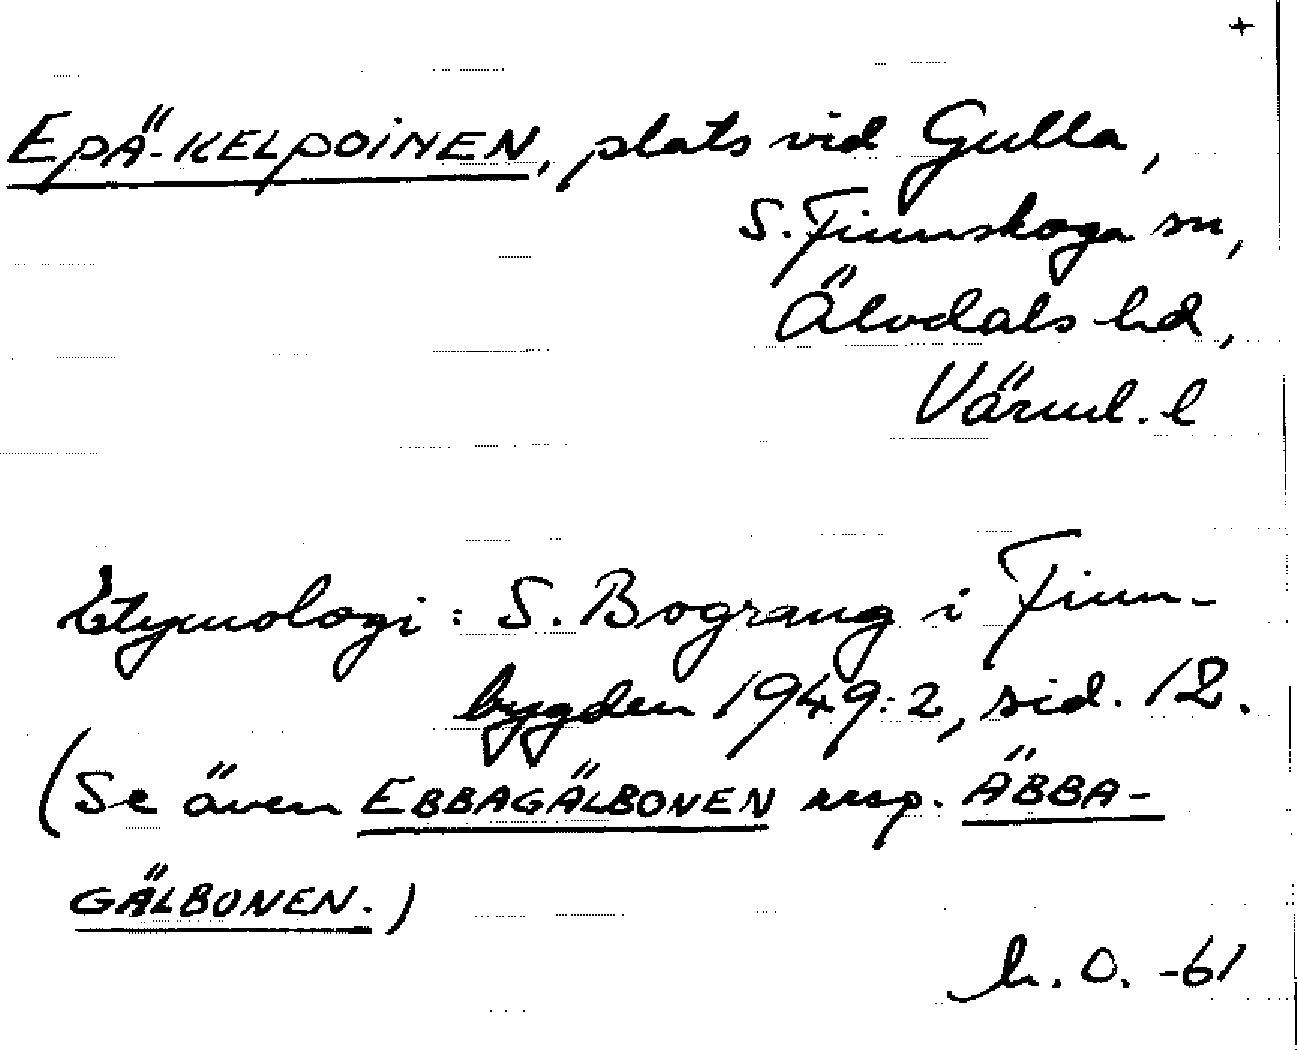 +
EPÄ-KELPOINEN, plats vid Gulla,
S. Finnskoga sn,
Älvdals hd,
Värml. l
Etymologi: S. Bograng i Finn-
bygden 1949:2, sid. 12.
(Se även EBBAGÄLBONEN resp. ÄBBA-
GÄLBONEN.)
h. O. -61